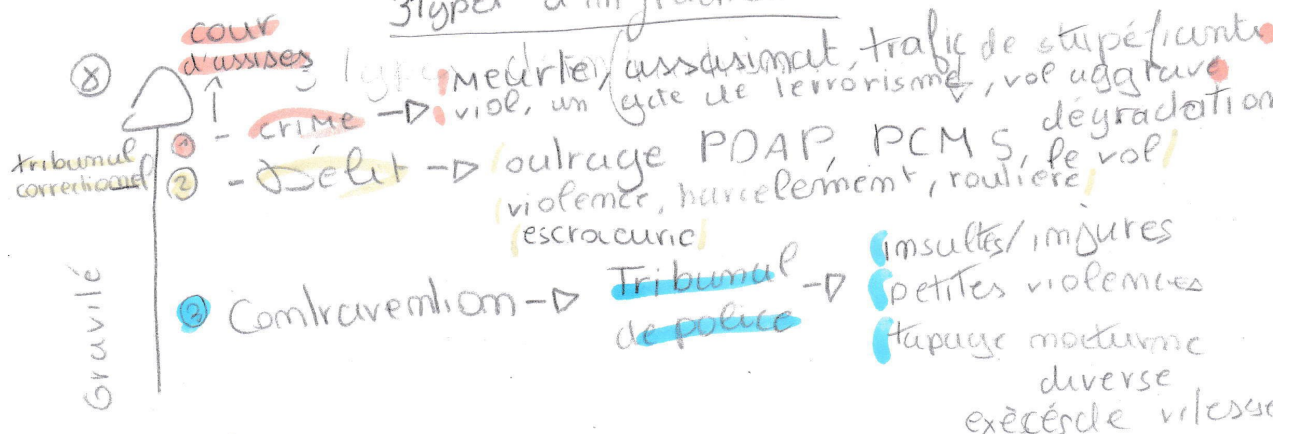 3 Types d'infractions
cour
d'assises
meurtre, assassimat, trafic de stupéfiants
① - crime -> viol, un acte de terrorisme, vol aggravé
dégradation
tribunal
correctionnel
② - Délit -> outrage PDAP, PCMS, le vol
violence, harcelement, roulière
escrocurie
Gravité
③ Contravention -> Tribunal
de police
-> insultes/injures
petites violences
tapage nocturne
diverse
exècésde vitesse